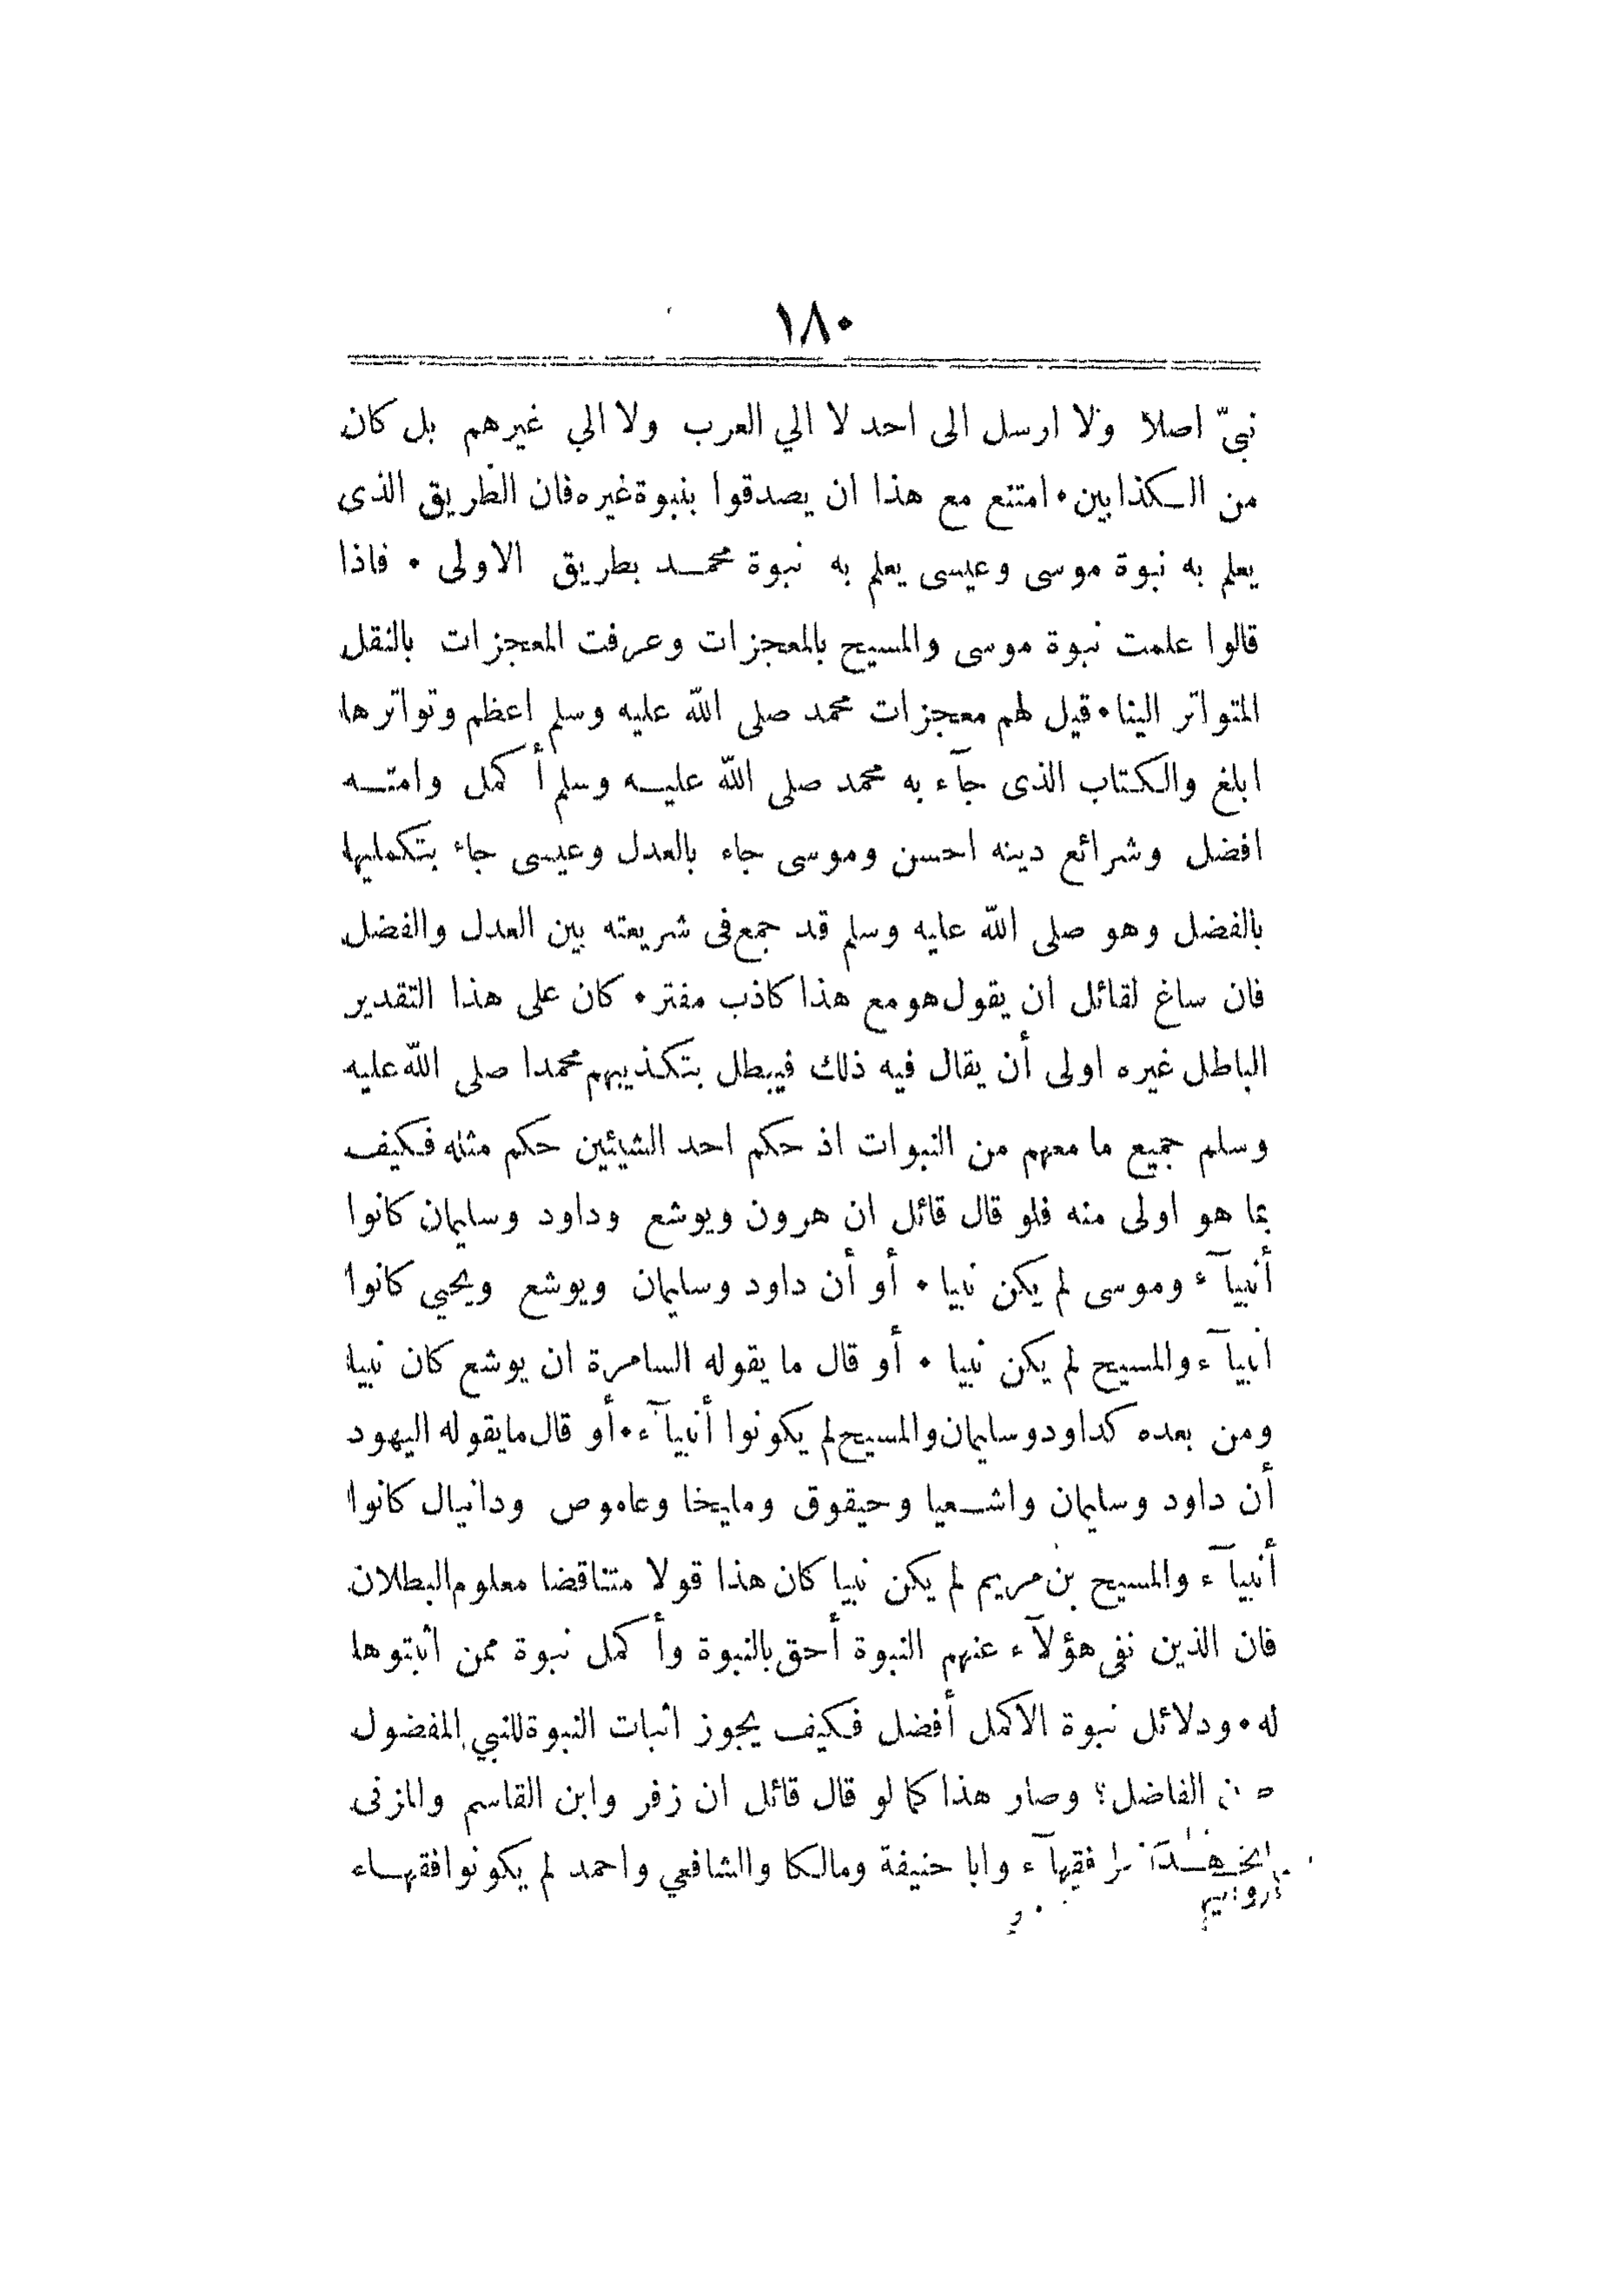 ١٨٠
نبيّ اصلا ولا ارسل الى احد لا الي العرب ولا الي غيرهم بل كان
من الكذابين • امتنع مع هذا ان يصدقوا بنبوة غيره فان الطريق الذى
يعلم به نبوة موسى وعيسى يعلم به نبوة محمد بطريق الاولى • فاذا
قالوا علمت نبوة موسى والمسيح بالمعجزات وعرفت المعجزات بالنقل
المتواتر الينا • قيل لهم معجزات محمد صلى الله عليه وسلم اعظم وتواترها
ابلغ والكتاب الذى جآء به محمد صلى الله عليه وسلم أكمل وامته
افضل وشرائع دينه احسن وموسى جاء بالعدل وعيسى جاء بتكمليها
بالفضل وهو صلى الله عليه وسلم قد جمع فى شريعته بين العدل والفضل
فان ساغ لقائل ان يقول هو مع هذا كاذب مفتر • كان على هذا التقدير
الباطل غيره اولى أن يقال فيه ذلك فيبطل بتكذيبهم محمدا صلى الله عليه
وسلم جميع ما معهم من النبوات اذ حكم احد الشيئين حكم مثله فكيف
بما هو اولى منه فلو قال قائل ان هرون ويوشع وداود وسليمان كانوا
أنبيآء وموسى لم يكن نبيا • أو أن داود وسليمان ويوشع ويحيي كانوا
انبيآء والمسيح لم يكن نبيا • أو قال ما يقوله السامرة ان يوشع كان نبيا
ومن بعده كداود وسليمان والمسيح لم يكونوا أنبيآء • أو قال ما يقوله اليهود
أن داود وسليمان واشعيا وحيقوق ومليخا وعاموص ودانيال كانوا
أنبيآء والمسيح بن مريم لم يكن نبيا كان هذا قولا متناقضا معلوم البطلان
فان الذين نفى هؤلآء عنهم النبوة أحق بالنبوة وأكمل نبوة ممن اثبتوها
له • ودلائل نبوة الاكمل أفضل فكيف يجوز اثبات النبوة للنبي المفضول
الفاضل؟ وصار هذا كما لو قال قائل ان زفر وابن القاسم والمزنى
فقهآء وابا حنيفة ومالكا والشافعي واحمد لم يكونوا فقهاء